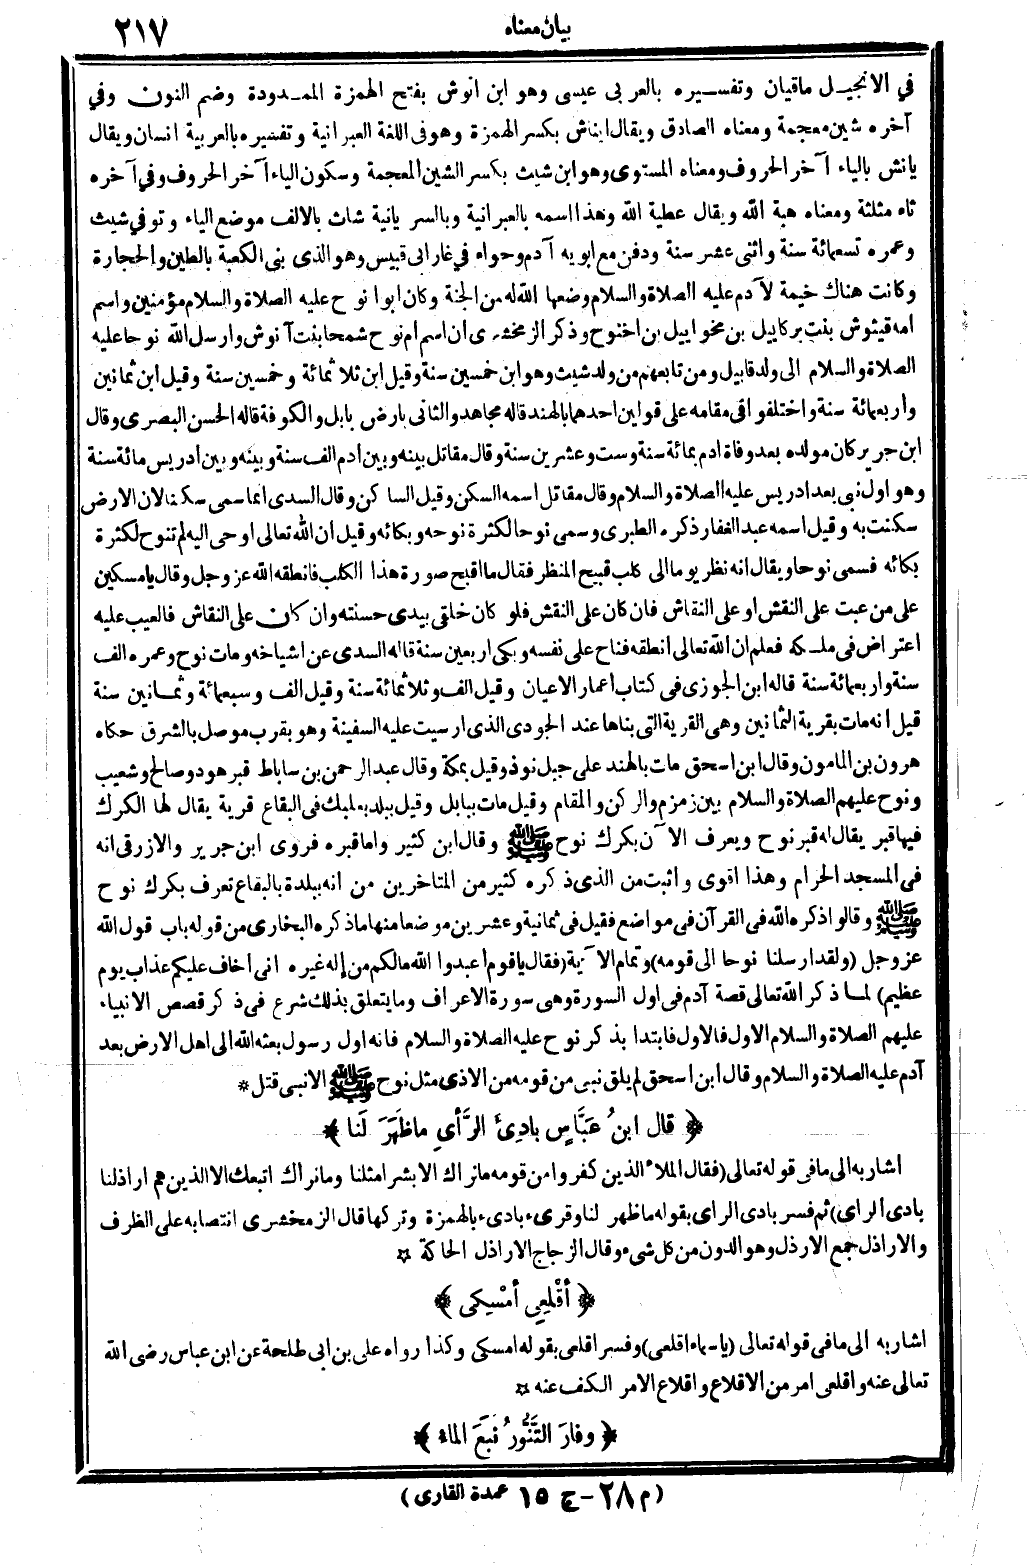 بيان معناه
٢١٧
في الانجيل ماقيان وتفسيره بالعربى عيسى وهو ابن انوش بفتح الهمزة الممدودة وضم النون وفي
آخره شين معجمة ومعناه الصادق ويقال ايناش بكسر الهمزة وهو فى اللغة العبرانية وتفسيره بالعربية انسان ويقال
يانش بالياء آخر الحروف ومعناه المستوى وهو ابن شيث بكسر الشين المعجمة وسكون الياء آخر الحروف وفي آخره
ثاء مثلثة ومعناه هبة الله ويقال عطية الله وهذا اسمه بالعبرانية وبالسريانية شاث بالالف موضع الياء وتوفي شيث
وعمره تسعمائة سنة واثنى عشر سنة ودفن مع ابويه آدم وحواء في غار ابى قبيس وهو الذى بنى الكعبة بالطين والحجارة
وكانت هناك خيمة لآدم عليه الصلاة والسلام وضعها الله له من الجنة وكان ابوا نوح عليه الصلاة والسلام مؤمنين واسم
امه قينوش بنت بركاييل بن مخواييل بن اخنوخ وذكر الزمخشرى ان اسم ام نوح شمحا بنت آنوش وارسل الله نوحا عليه
الصلاة والسلام الى ولد قابيل ومن تابعهم من ولد شيث وهو ابن خمسين سنة وقيل ابن ثلاثمائة وخمسين سنة وقيل ابن ثمانين
واربعمائة سنة واختلفوا فى مقامه على قولين احدهما بالهند قاله مجاهد والثانى بارض بابل والكوفة قاله الحسن البصرى وقال
ابن جرير كان مولده بعد وفاة ادم بمائة سنة وست وعشرين سنة وقال مقاتل بينه وبين آدم الف سنة وبينه وبين ادريس مائة سنة
وهو اول نبى بعد ادريس عليه الصلاة والسلام وقال مقاتل اسمه السكن وقيل الساكن وقال السدى انما سمى سكنا لان الارض
سكنت به وقيل اسمه عبد الغفار ذكره الطبرى وسمى نوحا لكثرة نوحه وبكائه وقيل ان الله تعالى اوحى اليه لم تنوح لكثرة
بكائه فسمى نوحا ويقال انه نظر يوما الى كلب قبيح المنظر فقال ما اقبح صورة هذا الكلب فانطقه الله عز وجل وقال يا مسكين
على من عبت على النقش او على النقاش فان كان على النقش فلو كان خلقى بيدى حسنته وان كان على النقاش فالعيب عليه
اعتراض فى ملكه فعلم ان الله تعالى انطقه فناح على نفسه وبكى اربعين سنة قاله السدى عن اشياخه ومات نوح وعمره الف
سنة واربعمائة سنة قاله ابن الجوزى فى كتاب اعمار الاعيان وقيل الف وثلاثمائة سنة وقيل الف وسبعمائة وثمانين سنة
قيل انه مات بقرية الثمانين وهى القرية التى بناها عند الجودى الذى ارسيت عليه السفينة وهو بقرب موصل بالشرق حكاه
هرون بن المامون وقال ابن اسحق مات بالهند على جبل نوذ وقيل بمكة وقال عبد الرحمن بن ساباط قبر هود وصالح وشعيب
ونوح عليهم الصلاة والسلام بين زمزم والركن والمقام وقيل مات ببابل وقيل ببلد بعلبك فى البقاع قرية يقال لها الكرك
فيها قبر يقال له قبر نوح ويعرف الآن بكرك نوح ﷺ وقال ابن كثير واما قبره فروى ابن جرير والازرقى انه
فى المسجد الحرام وهذا اقوى واثبت من الذى ذكره كثير من المتاخرين من انه ببلدة بالبقاع تعرف بكرك نوح
ﷺ وقالوا ذكره الله فى القرآن فى مواضع فقيل فى ثمانية وعشرين موضعا منها ما ذكره البخارى من قوله باب قول الله
عز وجل (ولقد ارسلنا نوحا الى قومه) وتمام الآية (فقال ياقوم اعبدوا الله مالكم من إله غيره انى اخاف عليكم عذاب يوم
عظيم) لما ذكر الله تعالى قصة آدم فى اول السورة وهى سورة الاعراف وما يتعلق بذلك شرع فى ذكر قصص الانبياء
عليهم الصلاة والسلام الاول فالاول فابتدا بذكر نوح عليه الصلاة والسلام فانه اول رسول بعثه الله الى اهل الارض بعد
آدم عليه الصلاة والسلام وقال ابن اسحق لم يلق نبى من قومه من الاذى مثل نوح ﷺ الا نبى قتل *
﴿ قال ابنُ عبَّاسٍ بادِئَ الرَّأيِ ماظَهَرَ لَنا ﴾
اشار به الى ما فى قوله تعالى (فقال الملأ الذين كفروا من قومه ما نراك الا بشرا مثلنا وما نراك اتبعك الا الذين هم اراذلنا
بادى الراى) ثم فسر بادى الراى بقوله ما ظهر لنا وقرىء بادىء بالهمزة وتركها قال الزمخشرى انتصابه على الظرف
والاراذل جمع الارذل وهو الدون من كل شىء وقال الزجاج الاراذل الحاكة ¤
﴿ أقْلِعِي أمْسِكى ﴾
اشار به الى ما فى قوله تعالى (يا سماء اقلعى) وفسر اقلعى بقوله امسكى وكذا رواه على بن ابى طلحة عن ابن عباس رضى الله
تعالى عنه واقلعى امر من الاقلاع واقلاع الامر الكف عنه ¤
﴿ وفارَ التَّنُّورُ نَبَعَ الماءُ ﴾
(م ٢٨ - ج ١٥ عمدة القارى)